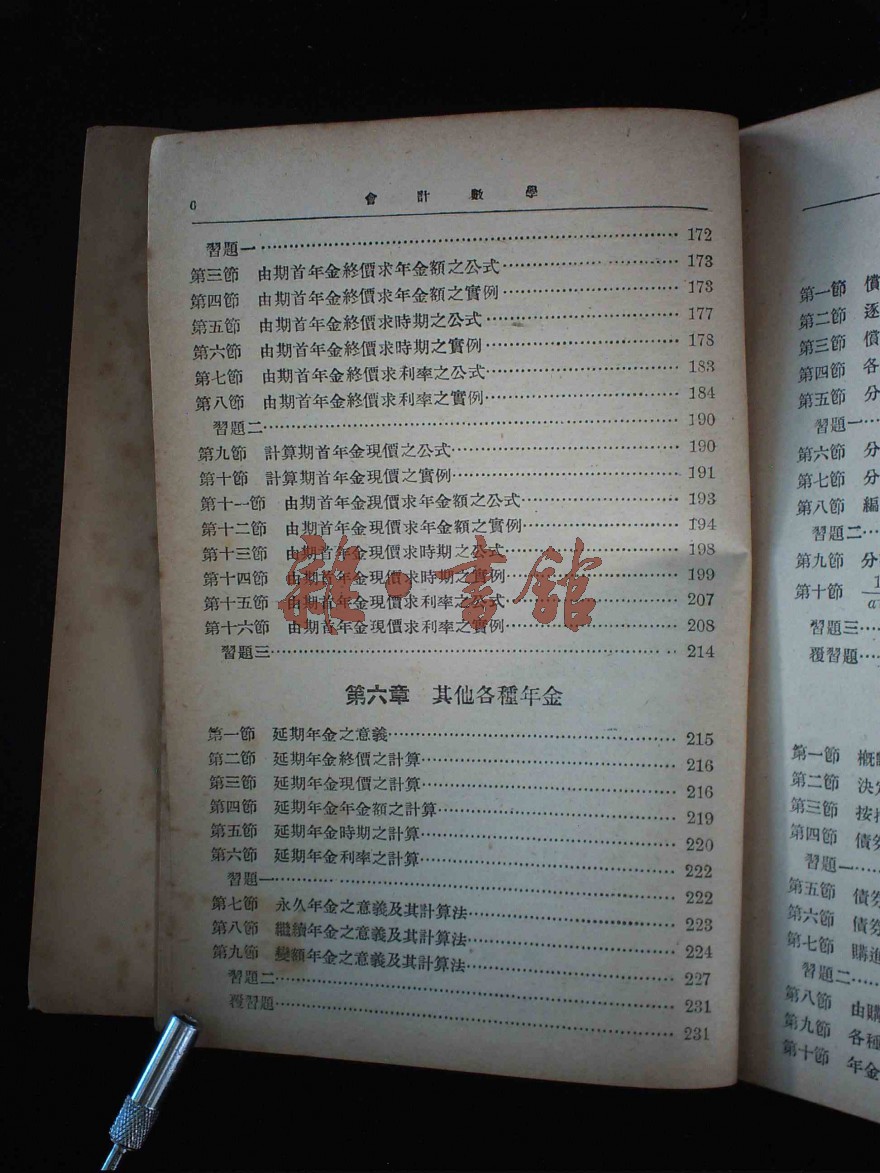 6 會計數學
習題一 172
第三節 由期首年金終價求年金額之公式 173
第四節 由期首年金終價求年金額之實例 173
第五節 由期首年金終價求時期之公式 177
第六節 由期首年金終價求時期之實例 178
第七節 由期首年金終價求利率之公式 183
第八節 由期首年金終價求利率之實例 184
習題二 190
第九節 計算期首年金現價之公式 190
第十節 計算期首年金現價之實例 191
第十一節 由期首年金現價求年金額之公式 193
第十二節 由期首年金現價求年金額之實例 194
第十三節 由期首年金現價求時期之公式 198
第十四節 由期首年金現價求時期之實例 199
第十五節 由期首年金現價求利率之公式 207
第十六節 由期首年金現價求利率之實例 208
習題三 214
雜·書館
第六章 其他各種年金
第一節 延期年金之意義 215
第二節 延期年金終價之計算 216
第三節 延期年金現價之計算 216
第四節 延期年金年金額之計算 219
第五節 延期年金時期之計算 220
第六節 延期年金利率之計算 222
習題一 222
第七節 永久年金之意義及其計算法 223
第八節 繼續年金之意義及其計算法 224
第九節 變額年金之意義及其計算法 227
習題二 231
覆習題 231
第一節 償
第二節 逐
第三節 償
第四節 各
第五節 分
習題一
第六節 分
第七節 分
第八節 編
習題二
第九節 分
第十節
習題三
覆習題
第一節 概
第二節 決
第三節 按
第四節 債券
習題一
第五節 債券
第六節 債券
第七節 購進
習題二
第八節 由購
第九節 各種
第十節 年金